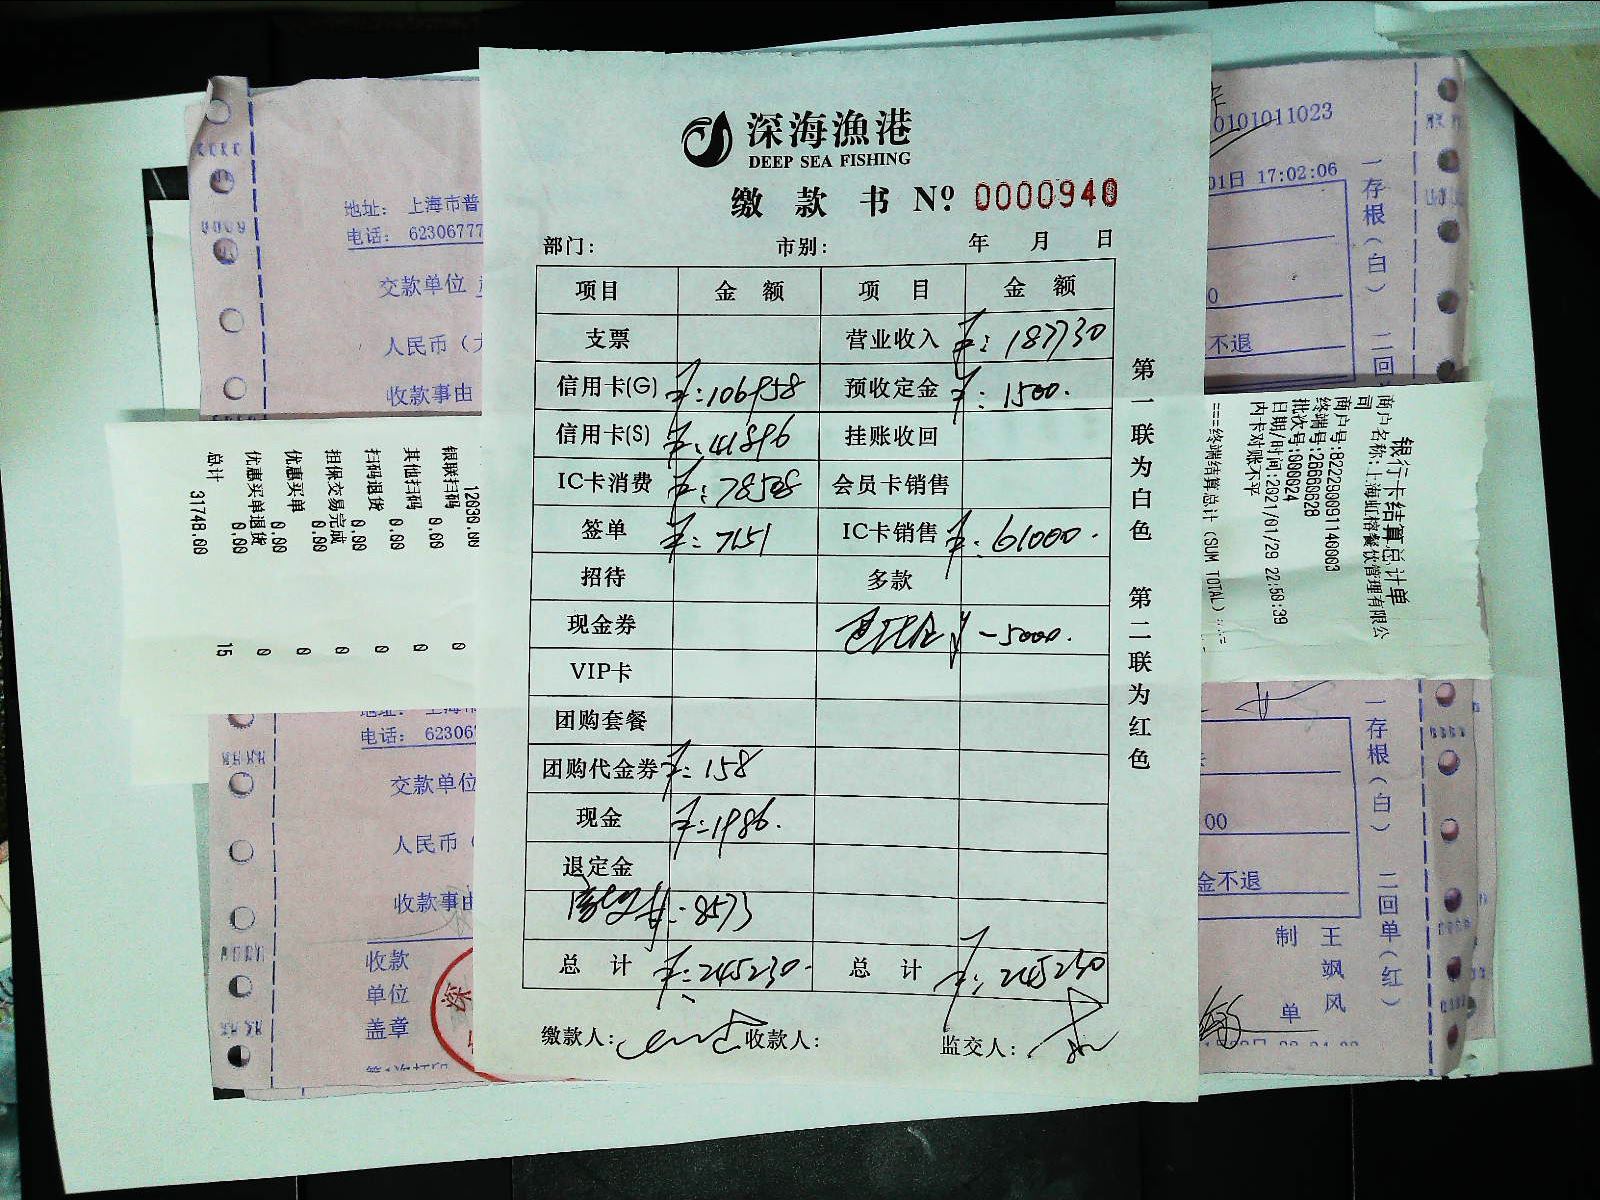 深海漁港
DEEP SEA FISHING
缴款书 Nº 0000940
部门： 市别： 年 月 日
项目 金额 项目 金额
支票 营业收入 ¥：187730
信用卡(G) ¥：106958 预收定金 ¥：1500.
信用卡(S) ¥：41896 挂账收回
IC卡消费 ¥：78508 会员卡销售
签单 ¥：7151 IC卡销售 ¥：61000.
招待 多款
现金券 ¥-5000.
VIP卡
团购套餐
团购代金券 ¥：158
现金 ¥：1986.
退定金
¥：8573
总计 ¥：245230. 总计 ¥：245230
缴款人： 收款人： 监交人：
第一联为白色 第二联为红色
地址： 上海市普
电话： 62306777
交款单位
人民币（大
收款事由
0101011023
01日 17:02:06
0
不退
一存根（白） 二回
银行卡结算总计单
商户名称:上海虹榕餐饮管理有限公司
商户号:822290091140003
终端号:26669628
批次号:000024
日期/时间:2021/01/29 22:50:39
内卡对账不平
==终端结算总计（SUM TOTAL）
12030.00
银联扫码 0.00 0
其他扫码 0.00 0
扫码退货 0.00 0
担保交易完成 0.00 0
优惠买单 0.00 0
优惠买单退货 0.00 0
总计 31748.00 15
电话： 62306
交款单位
人民币（
收款事由
收款
单位
盖章
深
00
金不退
制单 王飒风
一存根（白） 二回单（红）